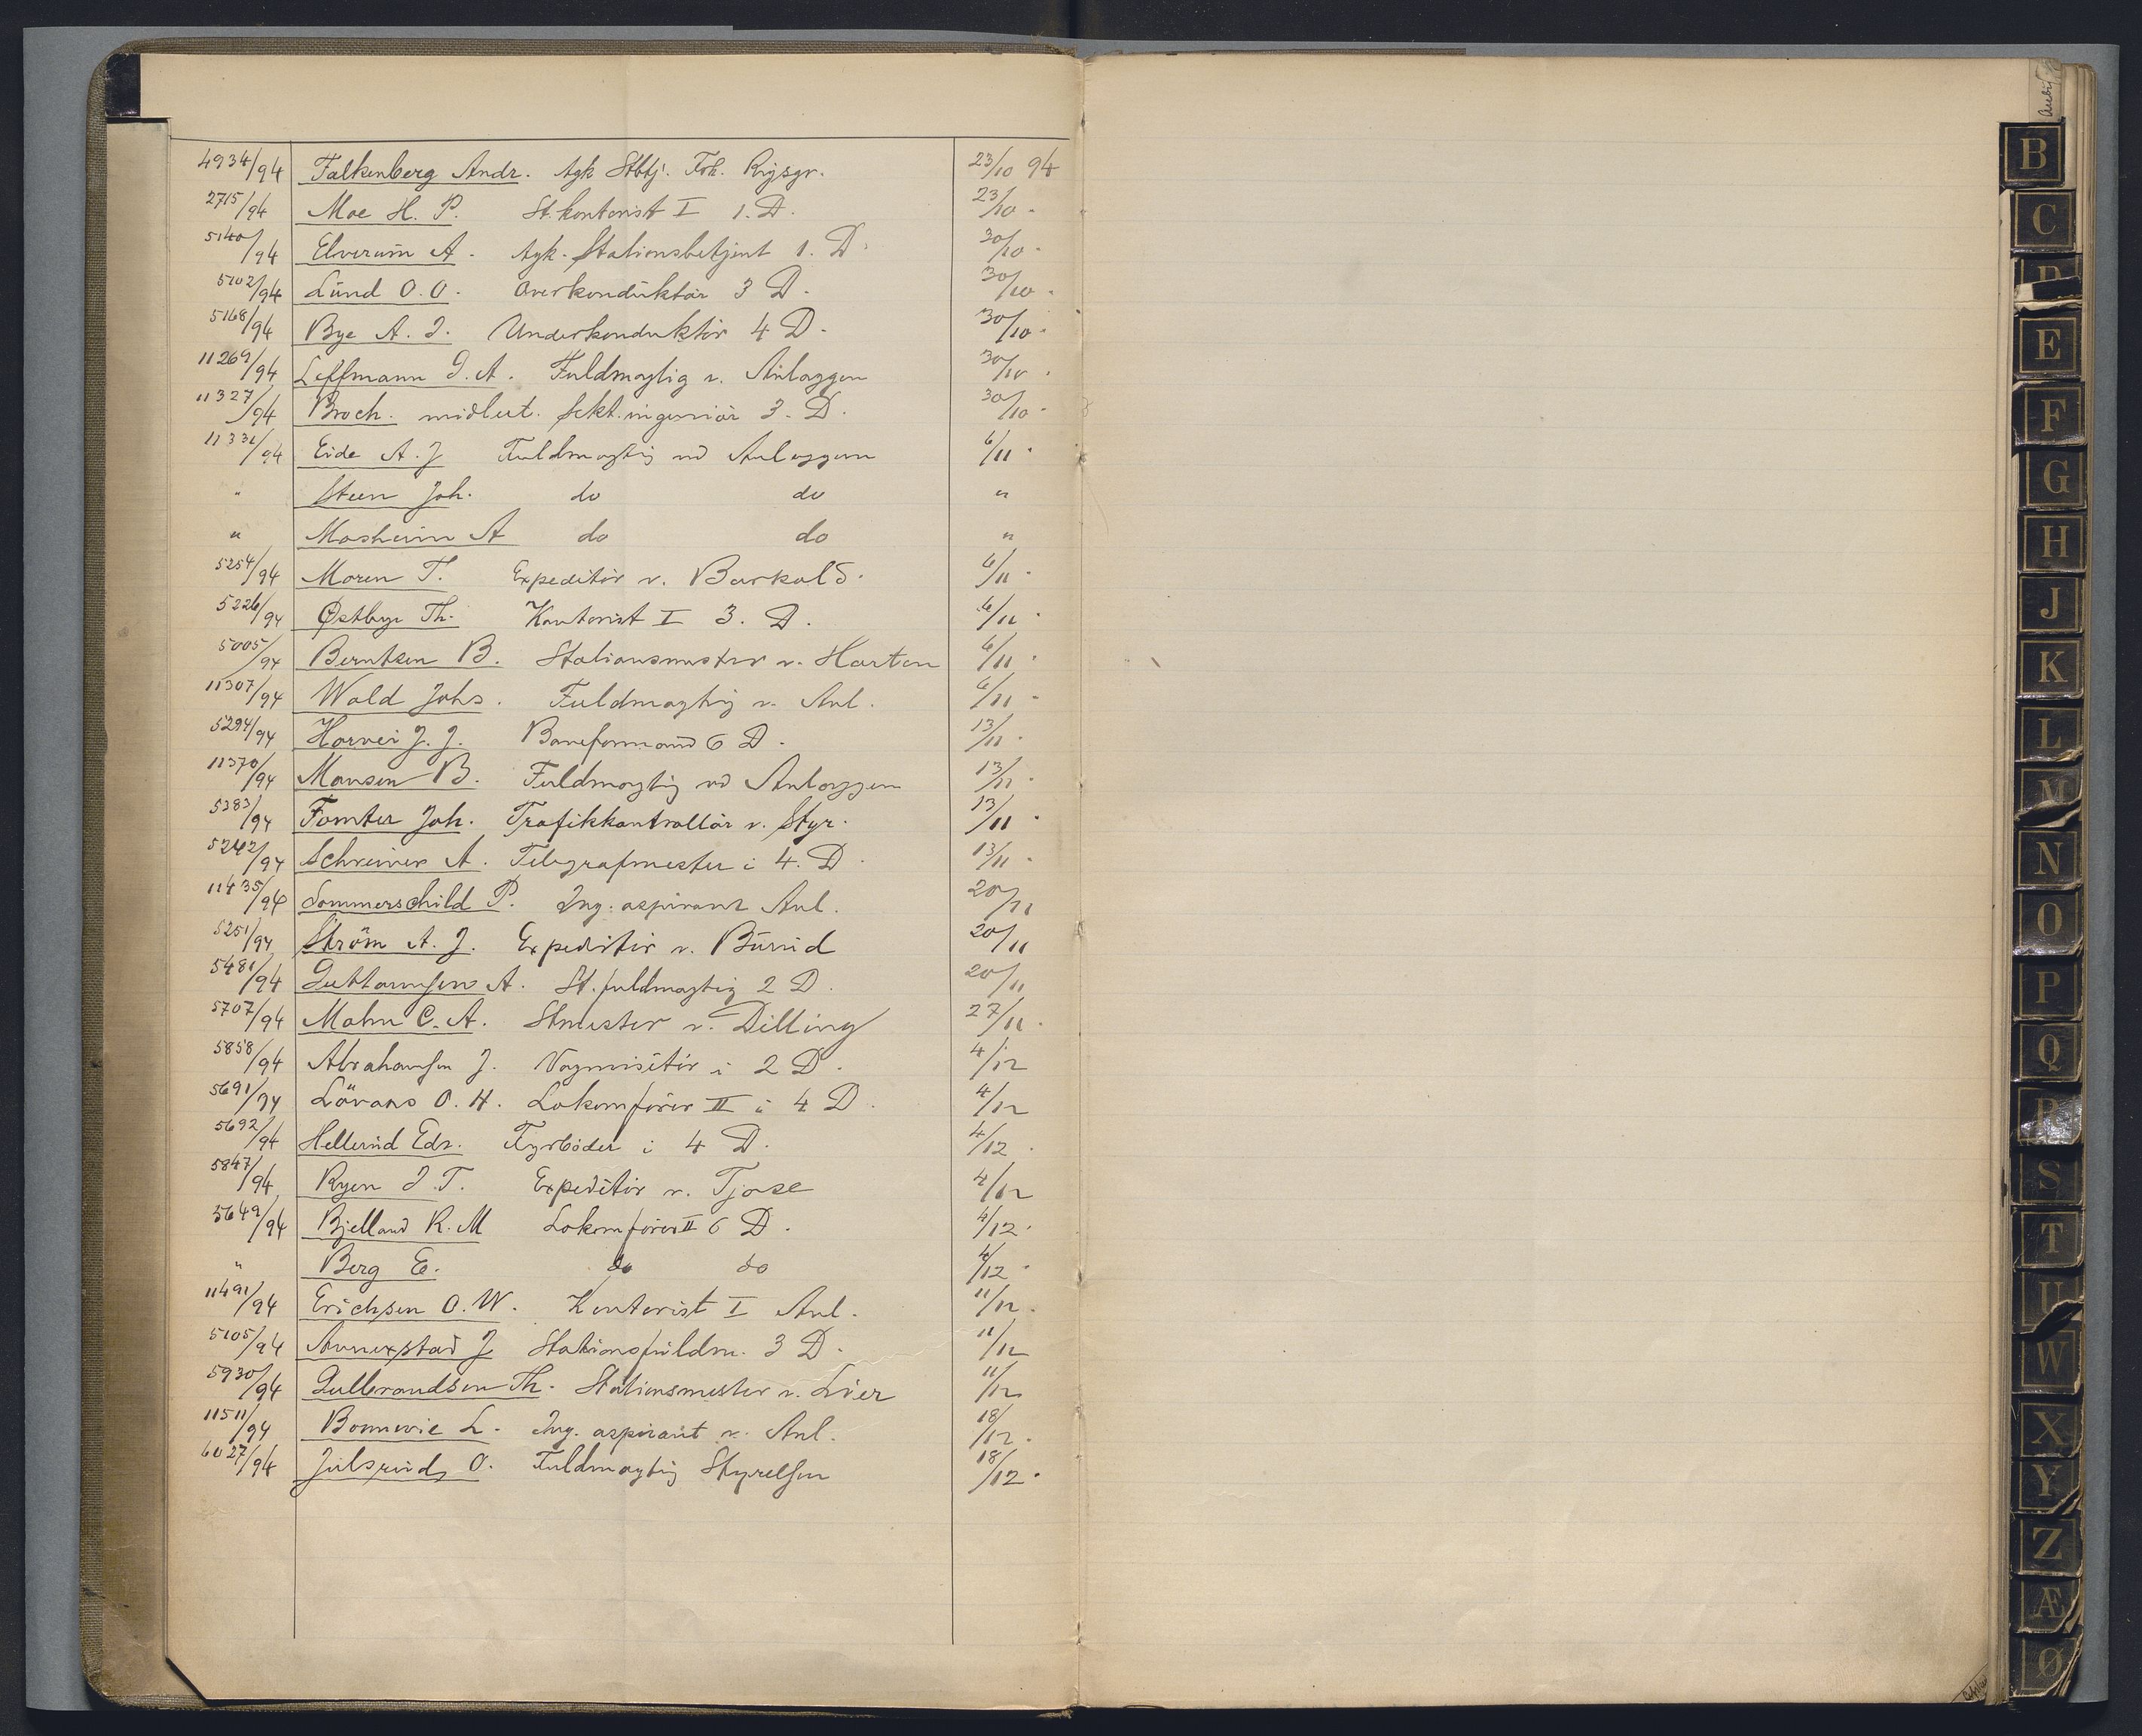 4934/94 Falkenberg Andr. Agk Stbtj. Toh. Rijsgr. 23/10 94
2715/94 Moe H. P. St. kontorist I 1. D. 23/10 -
5140/94 Elverum A. Agk. Stationsbetjent 1. D. 30/10 -
5102/94 Lund O. O. Overkonduktör 3 D. 30/10 -
5168/94 Bye A. J. Underkonduktör 4 D. 30/10 -
11269/94 Leffmann J. A. Fuldmægtig v. Anlæggen 30/10 -
11327/94 Broch. midlert. sekt.ingeniör 3. D. 30/10 -
11331/94 Eide A. J Fuldmægtig ved Anlæggene 6/11 -
" Steen Joh. do do "
" Mosheim A do do "
5254/94 Moren T. Expeditör v. Barkald. 6/11 -
5226/94 Østbye Th. Kontorist I 3. D. 6/11 -
5005/94 Berntsen B. Stationsmester v. Horten 6/11 -
11307/94 Wold Johs. Fuldmægtig v. Anl. 6/11 -
5294/94 Horvei J. J. Baneformand 6 D. 13/11 -
11370/94 Monsen B. Fuldmægtig ved Anlæggene 13/11 -
5383/94 Tomter Joh. Trafikkontrollör v. Styr. 13/11 -
5242/94 Schreiner A. Telegrafmester i 4. D. 13/11 -
11435/94 Sommerschild P. Ing. aspirant Anl. 20/11
5251/94 Ström A. J. Expeditör v. Burud 20/11
5481/94 Guttormsen A. St. fuldmægtig 2 D. 20/11
5707/94 Mohn C. A. Stmester v. Dilling 27/11 -
5858/94 Abrahamsen J. Vognvisitör i 2 D. 4/12
5691/94 Lövaas O. H. Lokomförer II i 4 D. 4/12
5692/94 Hellerud Edv. Fyrböder i 4 D. 4/12
5847/94 Ryen J. T. Expeditör v. Tjose 4/12
5649/94 Bjelland R. M Lokomförer II 6 D. 4/12 -
" Berg E. do do 4/12 -
11491/94 Erichsen O. W. Kontorist I Anl. 11/12 -
5105/94 Annexstad J Stationsfuldm. 3 D. 11/12
5930/94 Gulbrandsen Th. Stationsmester v. Lier 11/12
11511/94 Bonnevie L. Ing. aspirant v. Anl. 18/12 -
6027/94 Julsrud O. Fuldmægtig Styrelsen 18/12 -
B
C
D
E
F
G
H
J
K
L
M
N
O
P
Q
R
S
T
U
W
X
Y
Z
Æ
Ø